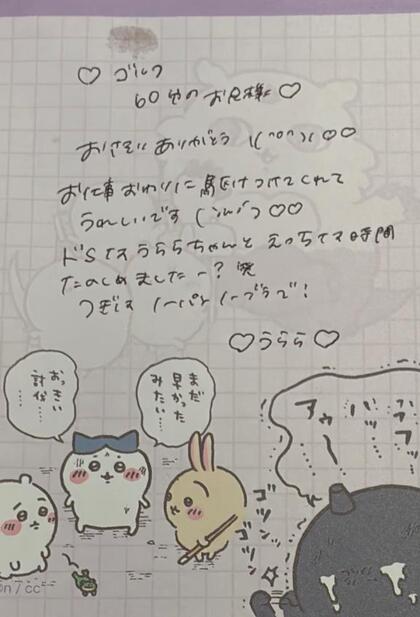 ♡ ゴルフ
60分のお兄様♡
おさそいありがとう ♡♡
お仕事おわりに駆けつけてくれて
うれしいです ♡♡
ドSなうららちゃんとえっちな時間
たのしめましたー？笑
つぎは ノーパンノーブラで！
♡うらら♡
おっきい
討伐……
まだ
早かった
みたい…
アゥ〜
バッ
フッ
ゴッ
ゴツン